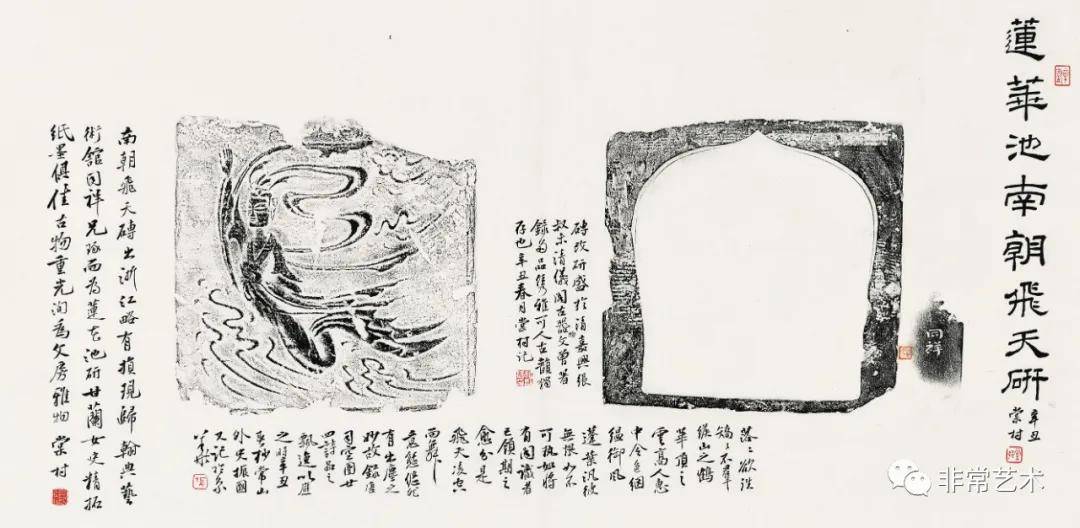 蓮華池南朝飛天研
辛丑
棠村
同祥
磚改研盛於清嘉興張
叔未清儀閣古器文曾著
錄多品隽雅可人古韻獨
存也辛丑春月棠村記
落落欲往
矯矯不羣
緱山之鶴
華頂之
雲高人惠
中令色絪
縕御風
蓬葉汎彼
無垠如不
可執如將
有聞識者
已領期之
愈分是
飛天凌空
而舞
意態悠然
有出塵之
妙故錄唐
司空圖廿
四詩品之
飄逸以應
之時辛丑
杪常山
外史振國
又記於
南朝飛天磚出浙江略有損現歸翰典藝
術館同祥兄琢而為蓮花池研廿蘭女史精拓
紙墨俱佳古物重光洵為文房雅物棠村
非常艺术